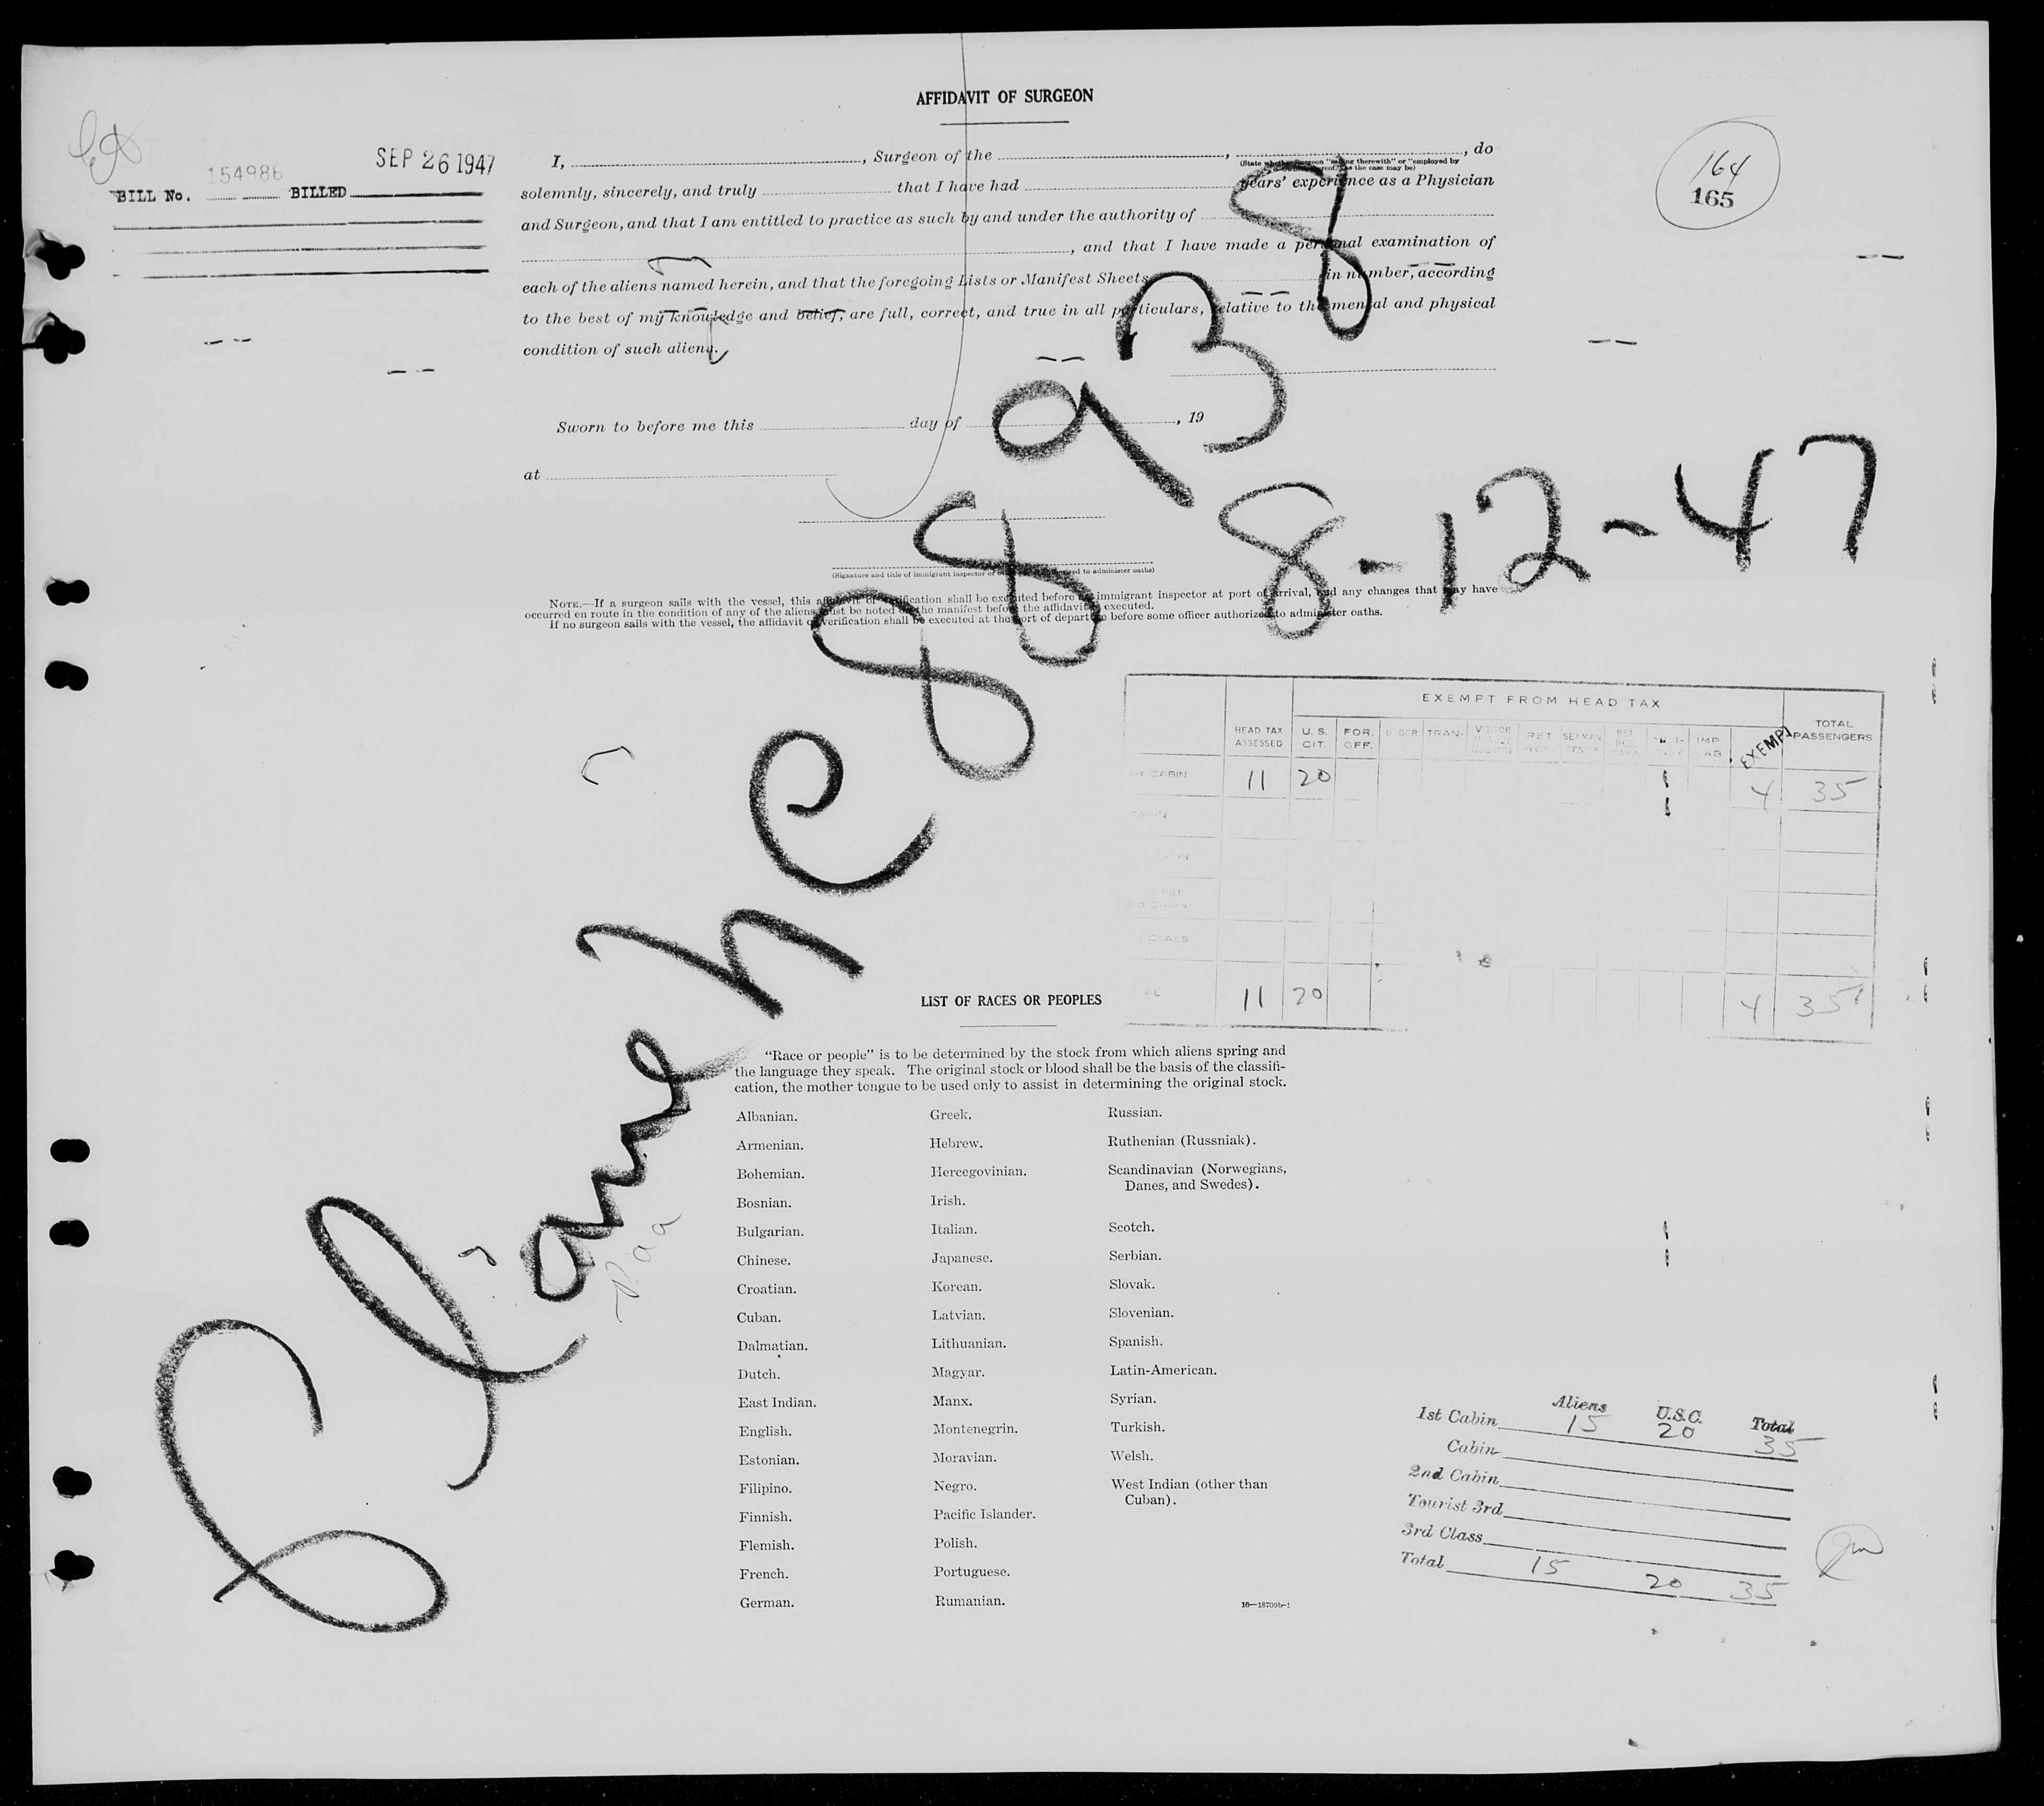 AFFIDAVIT OF SURGEON
154986
SEP 26 1947
BILL No. BILLED
164
165
I, , Surgeon of the , , do
(State whether Surgeon "sailing therewith" or "employed by
the case may be)
solemnly, sincerely, and truly that I have had years' experience as a Physician
and Surgeon, and that I am entitled to practice as such by and under the authority of
, and that I have made a personal examination of
each of the aliens named herein, and that the foregoing Lists or Manifest Sheets in number, according
to the best of my knowledge and belief, are full, correct, and true in all particulars, relative to the mental and physical
condition of such aliens.
Sworn to before me this day of , 19
at
(Signature and title of immigrant inspector or to administer oaths)
NOTE.—If a surgeon sails with the vessel, this affidavit or verification shall be executed before an immigrant inspector at port of arrival, and any changes that may have
occurred en route in the condition of any of the aliens must be noted on the manifest before the affidavit is executed.
If no surgeon sails with the vessel, the affidavit or verification shall be executed at the port of departure before some officer authorized to administer oaths.
Plane NC 88938
8-12-47
Paa
EXEMPT FROM HEAD TAX
HEAD TAX ASSESSED U. S. CIT. FOR. OFF. UNDER TRAN- VISITOR RET SEAMAN RET IMP EXEMPT TOTAL PASSENGERS
1st CABIN 11 20 4 35
CABIN
CLASS
11 20 4 35
LIST OF RACES OR PEOPLES
"Race or people" is to be determined by the stock from which aliens spring and
the language they speak. The original stock or blood shall be the basis of the classifi-
cation, the mother tongue to be used only to assist in determining the original stock.
Albanian.
Armenian.
Bohemian.
Bosnian.
Bulgarian.
Chinese.
Croatian.
Cuban.
Dalmatian.
Dutch.
East Indian.
English.
Estonian.
Filipino.
Finnish.
Flemish.
French.
German.
Greek.
Hebrew.
Hercegovinian.
Irish.
Italian.
Japanese.
Korean.
Latvian.
Lithuanian.
Magyar.
Manx.
Montenegrin.
Moravian.
Negro.
Pacific Islander.
Polish.
Portuguese.
Rumanian.
Russian.
Ruthenian (Russniak).
Scandinavian (Norwegians,
Danes, and Swedes).
Scotch.
Serbian.
Slovak.
Slovenian.
Spanish.
Latin-American.
Syrian.
Turkish.
Welsh.
West Indian (other than
Cuban).
16—18709b-1
Aliens U.S.C. Total
1st Cabin 15 20 35
Cabin
2nd Cabin
Tourist 3rd
3rd Class
Total 15 20 35